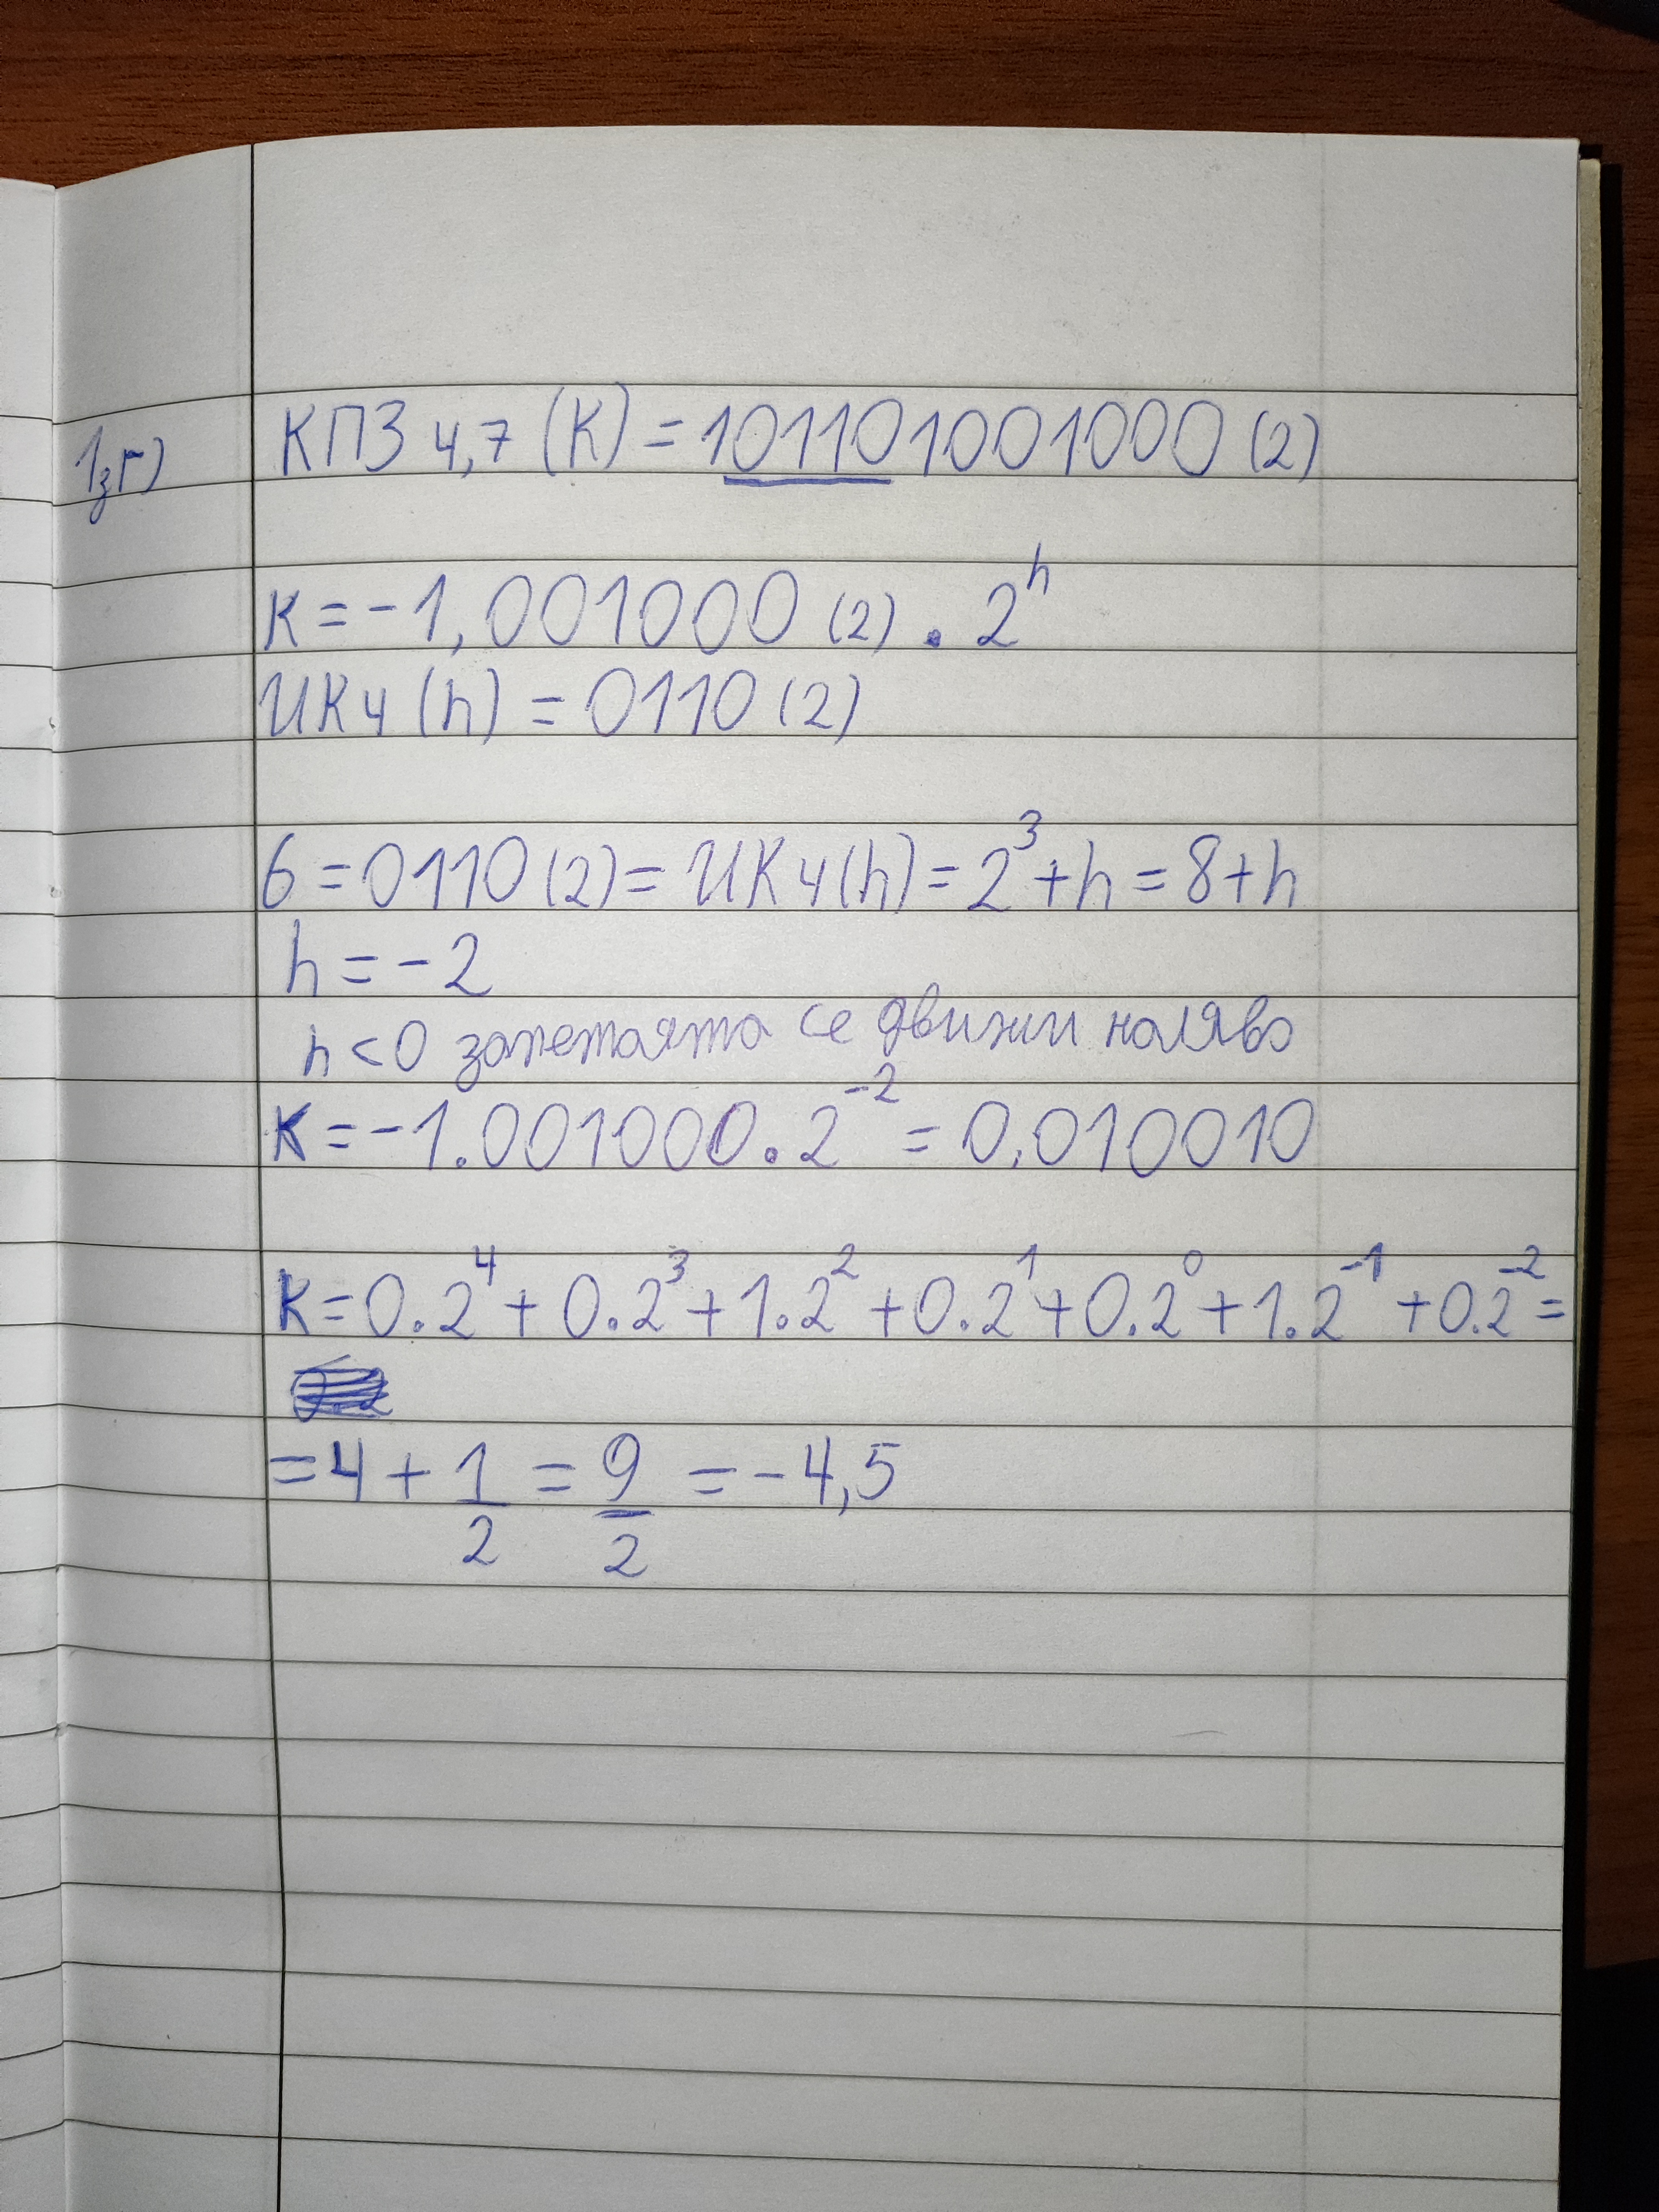 1з.г) КПЗ 4,7 (К) = 101101001000 (2)
К = -1,001000 (2) . 2^h
ИК4 (h) = 0110 (2)
6 = 0110 (2) = ИК4(h) = 2^3 + h = 8 + h
h = -2
h < 0 запетаята се движи наляво
К = -1.001000 . 2^-2 = 0,010010
К = 0.2^4 + 0.2^3 + 1.2^2 + 0.2^1 + 0.2^0 + 1.2^-1 + 0.2^-2 =
= 4 + 1/2 = 9/2 = -4,5